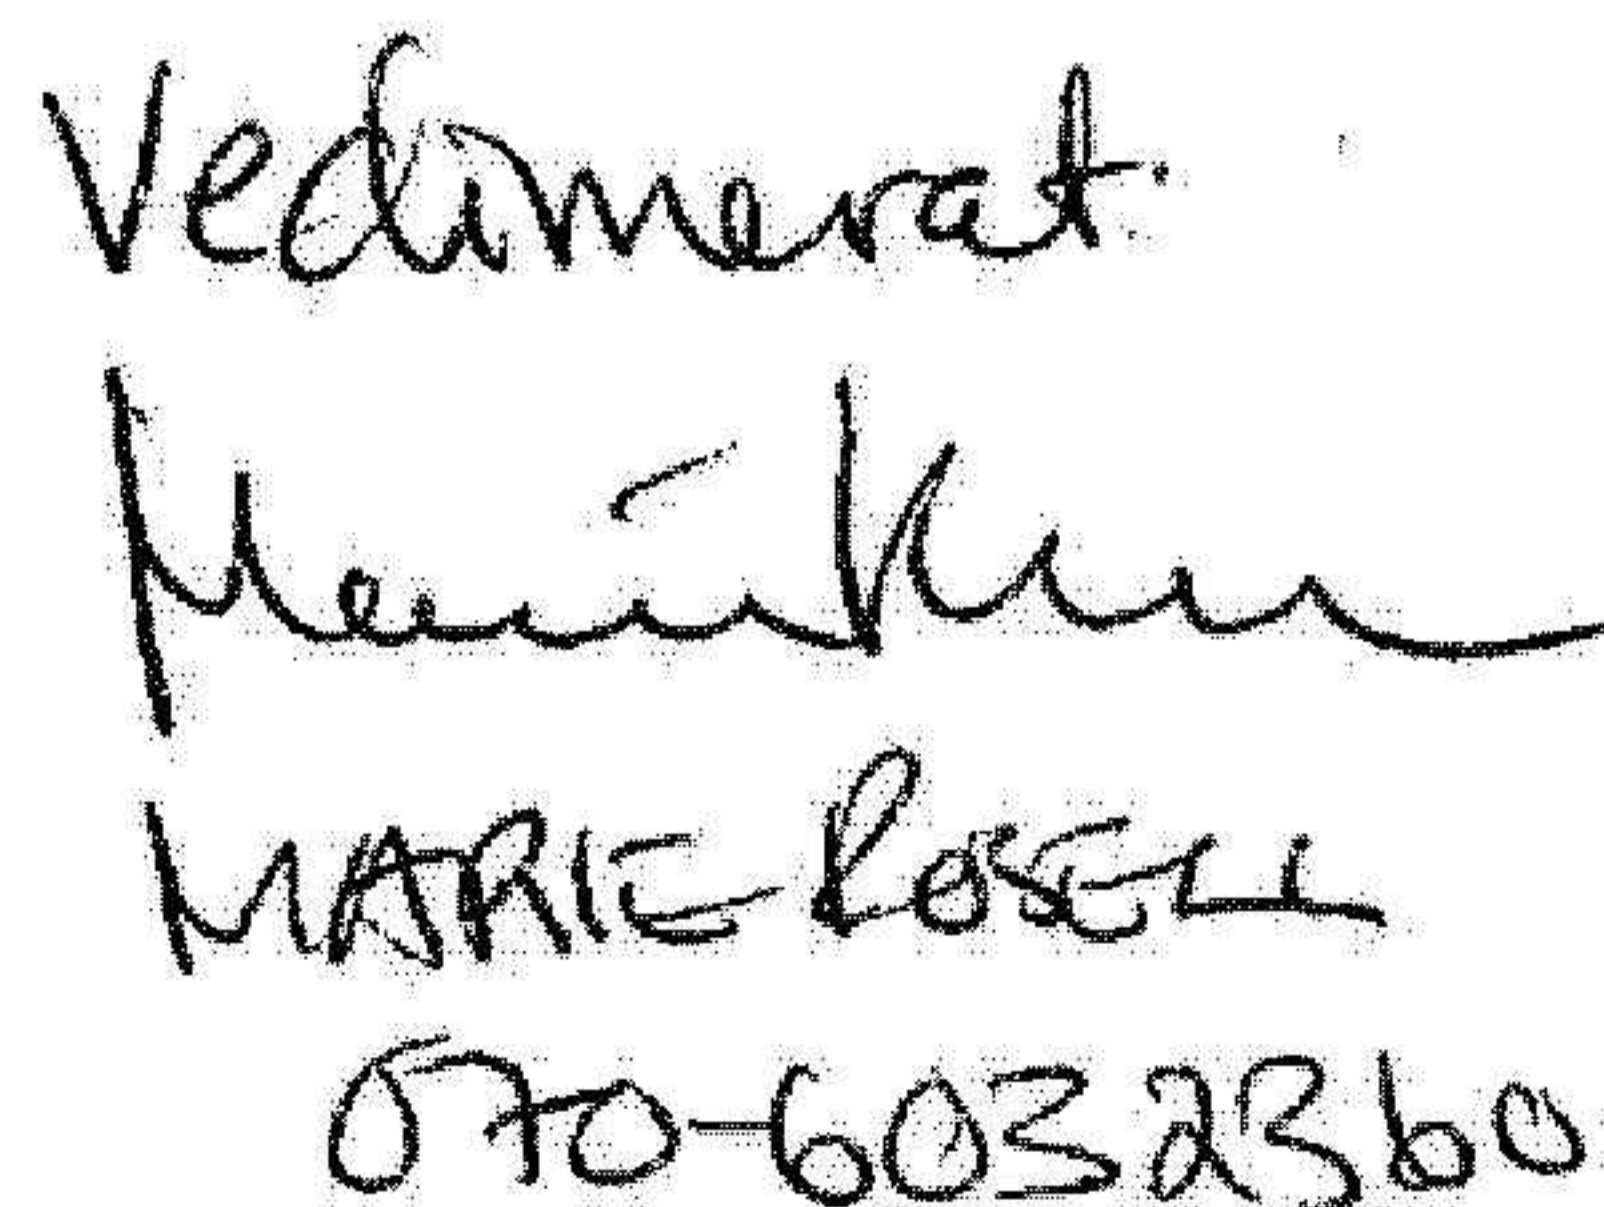 Vedimerat.
MARIE ROSELL
070-6032360